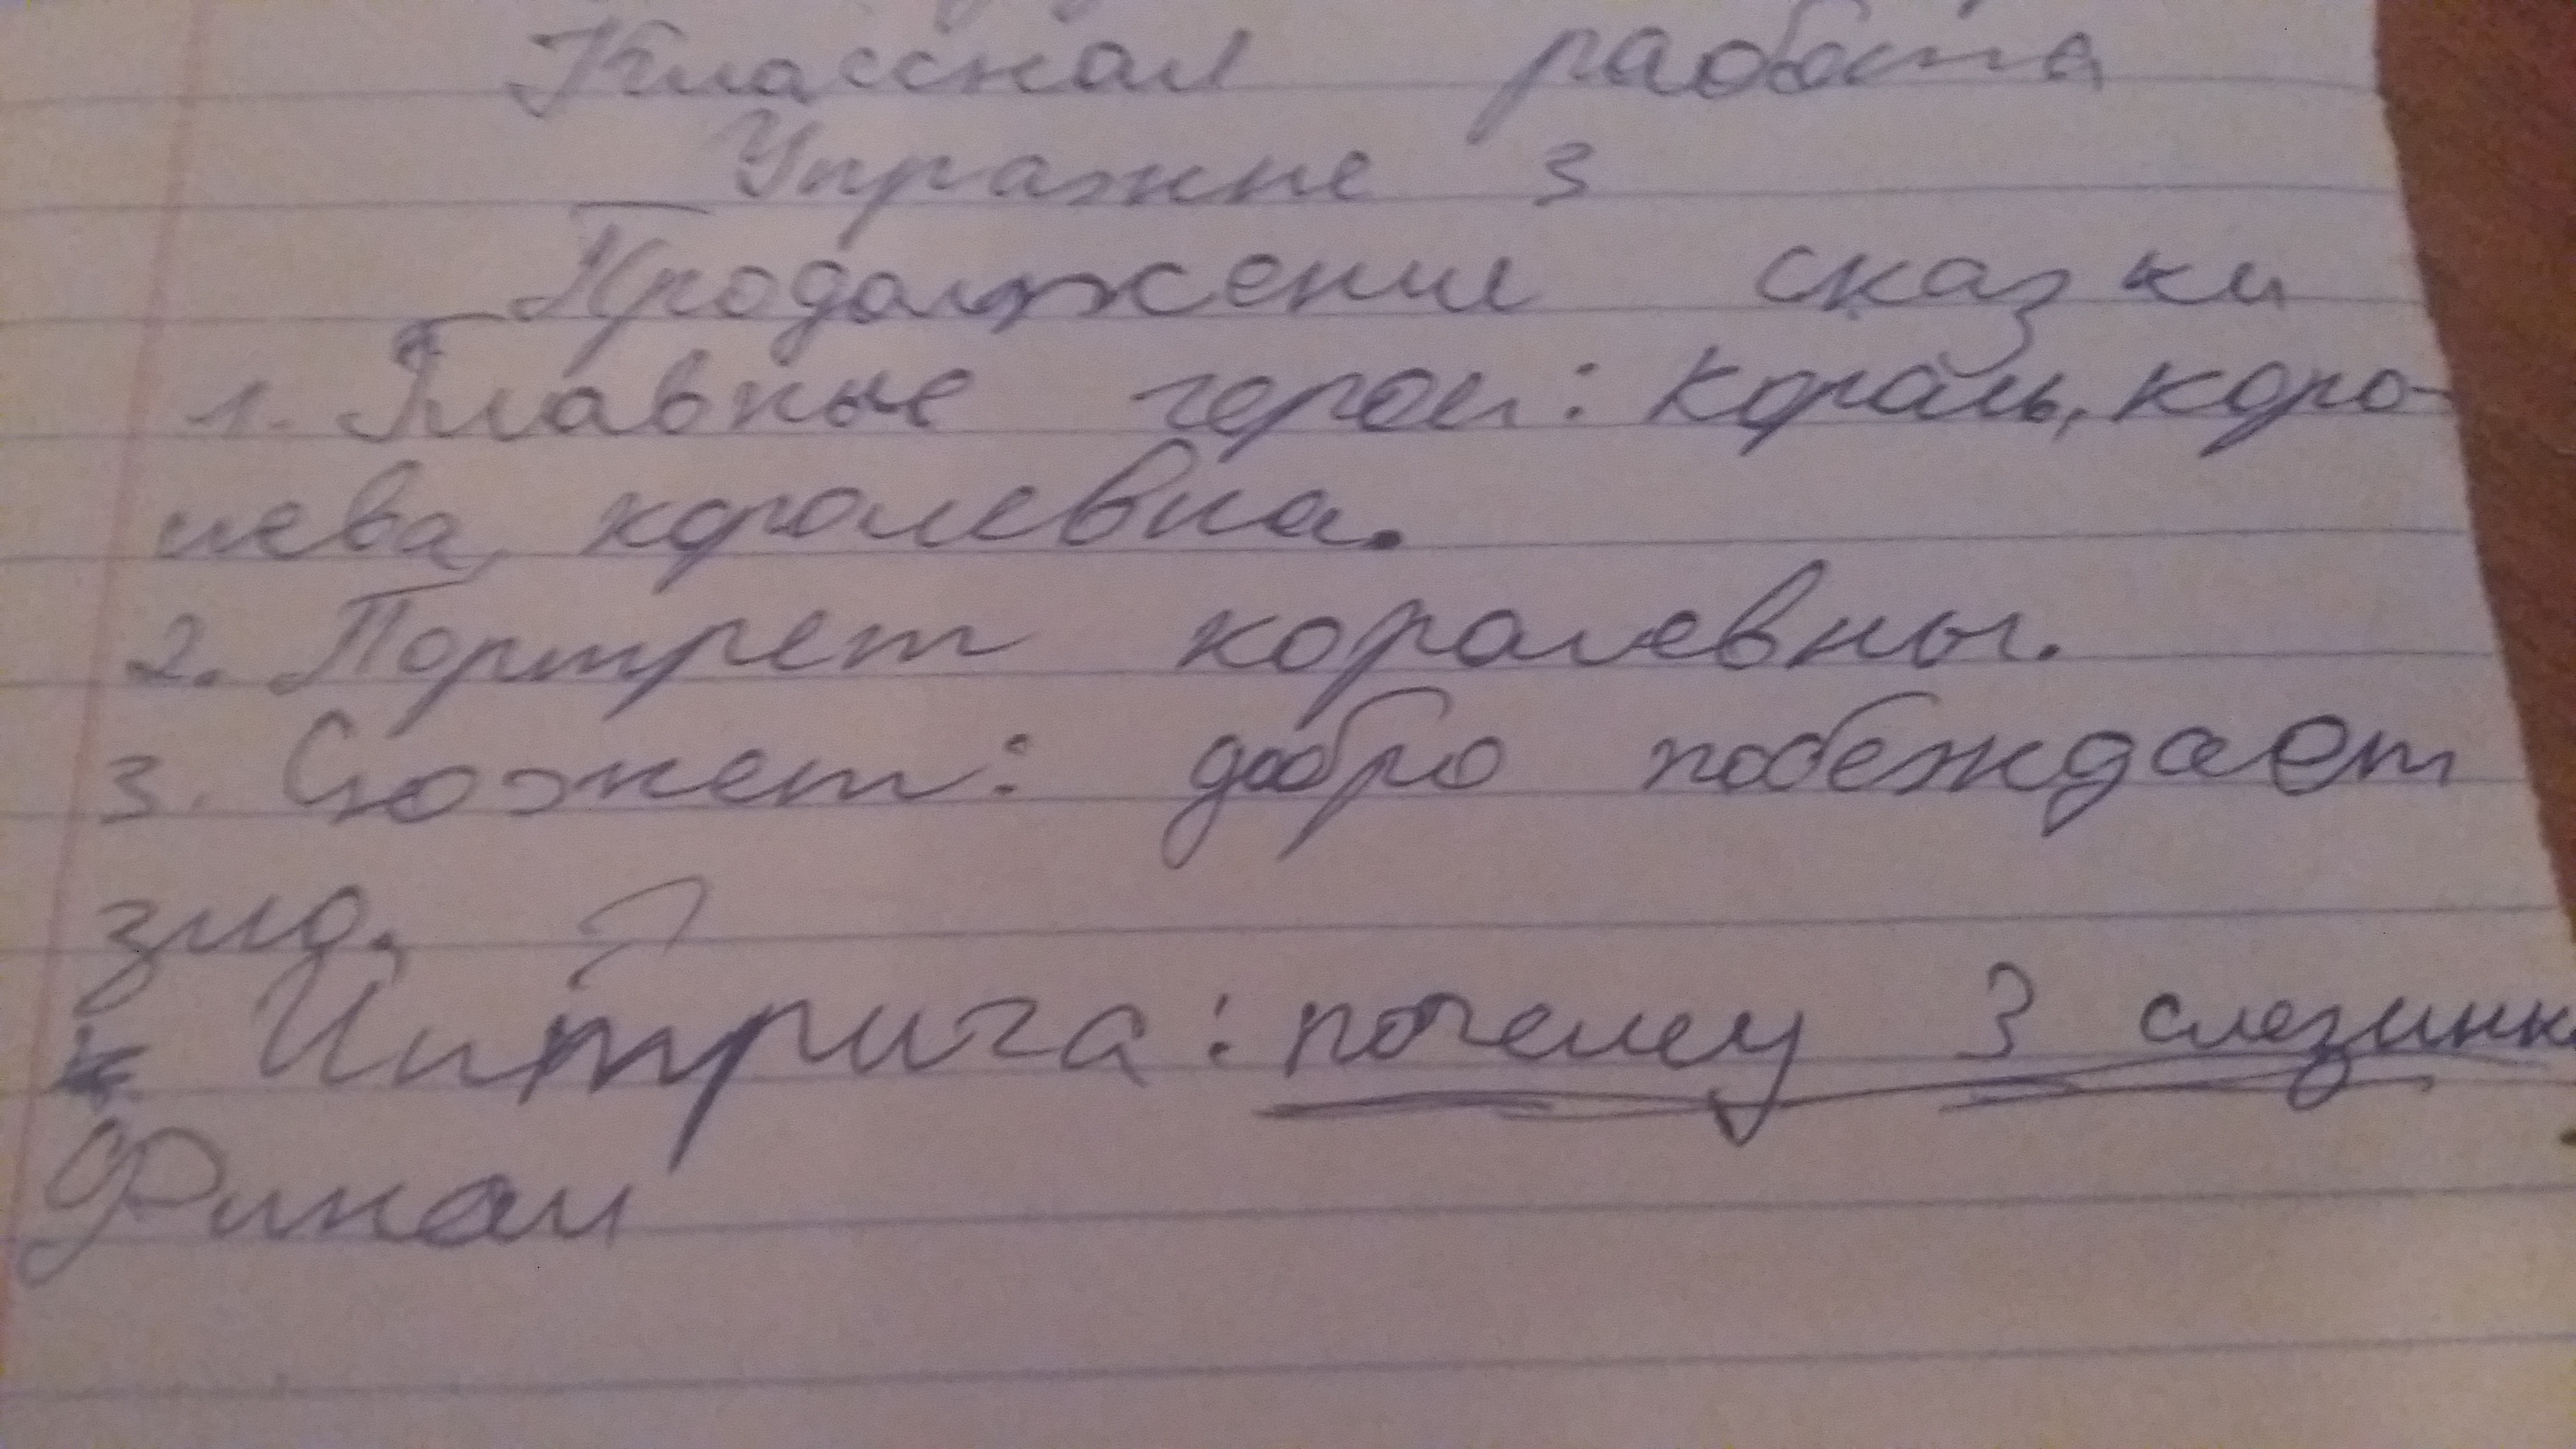 Классная работа
Упражне 3
Продолжении сказки
1. Главные герои: король, коро-
лева, королевна.
2. Портрет королевны.
3. Сюжет: добро побеждает
зло.
Интрига: почему 3 слезинк
Финал